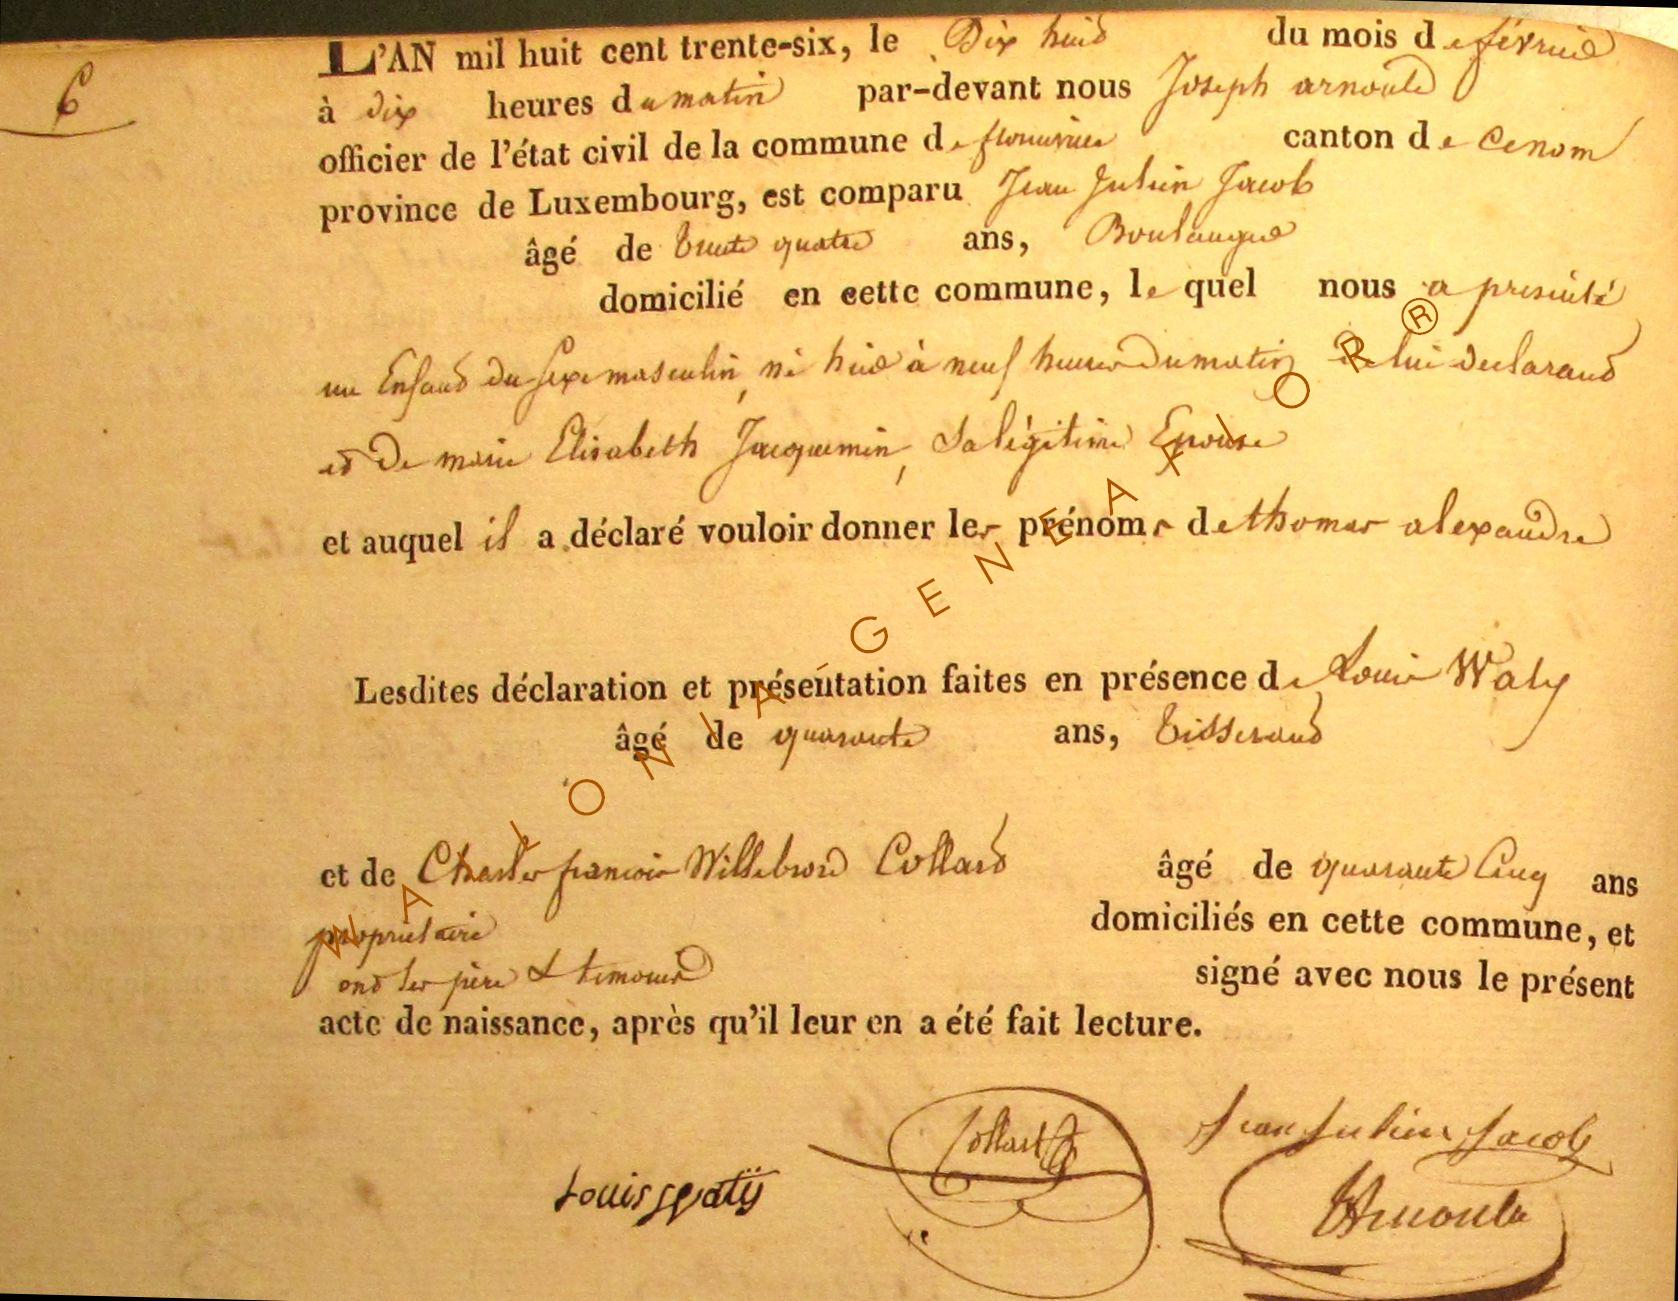 6
L'AN mil huit cent trente-six, le Dix huit du mois de février
à dix heures du matin par-devant nous Joseph arnould
officier de l'état civil de la commune de canton de
province de Luxembourg, est comparu Jean Julien Jacob
âgé de trente quatre ans, Boulanger
domicilié en cette commune, le quel nous a presenté
un Enfant du Sexe masculin, né hier à neuf heures du matin de lui declarant
et de marie Elisabeth Jacquemin, Sa légitime Epouse
et auquel il a déclaré vouloir donner les prénoms de thomas alexandre
Lesdites déclaration et présentation faites en présence de Louis Waty
âgé de quarante ans, tisserand
et de Charles françois Willebrord Collard âgé de quarante Cinq ans
proprietaire domiciliés en cette commune, et
ont les père & temoins signé avec nous le présent
acte de naissance, après qu'il leur en a été fait lecture.
Collard Jean Julien Jacob
Louis watÿ Arnould
WALLONIA GENEALOR ®